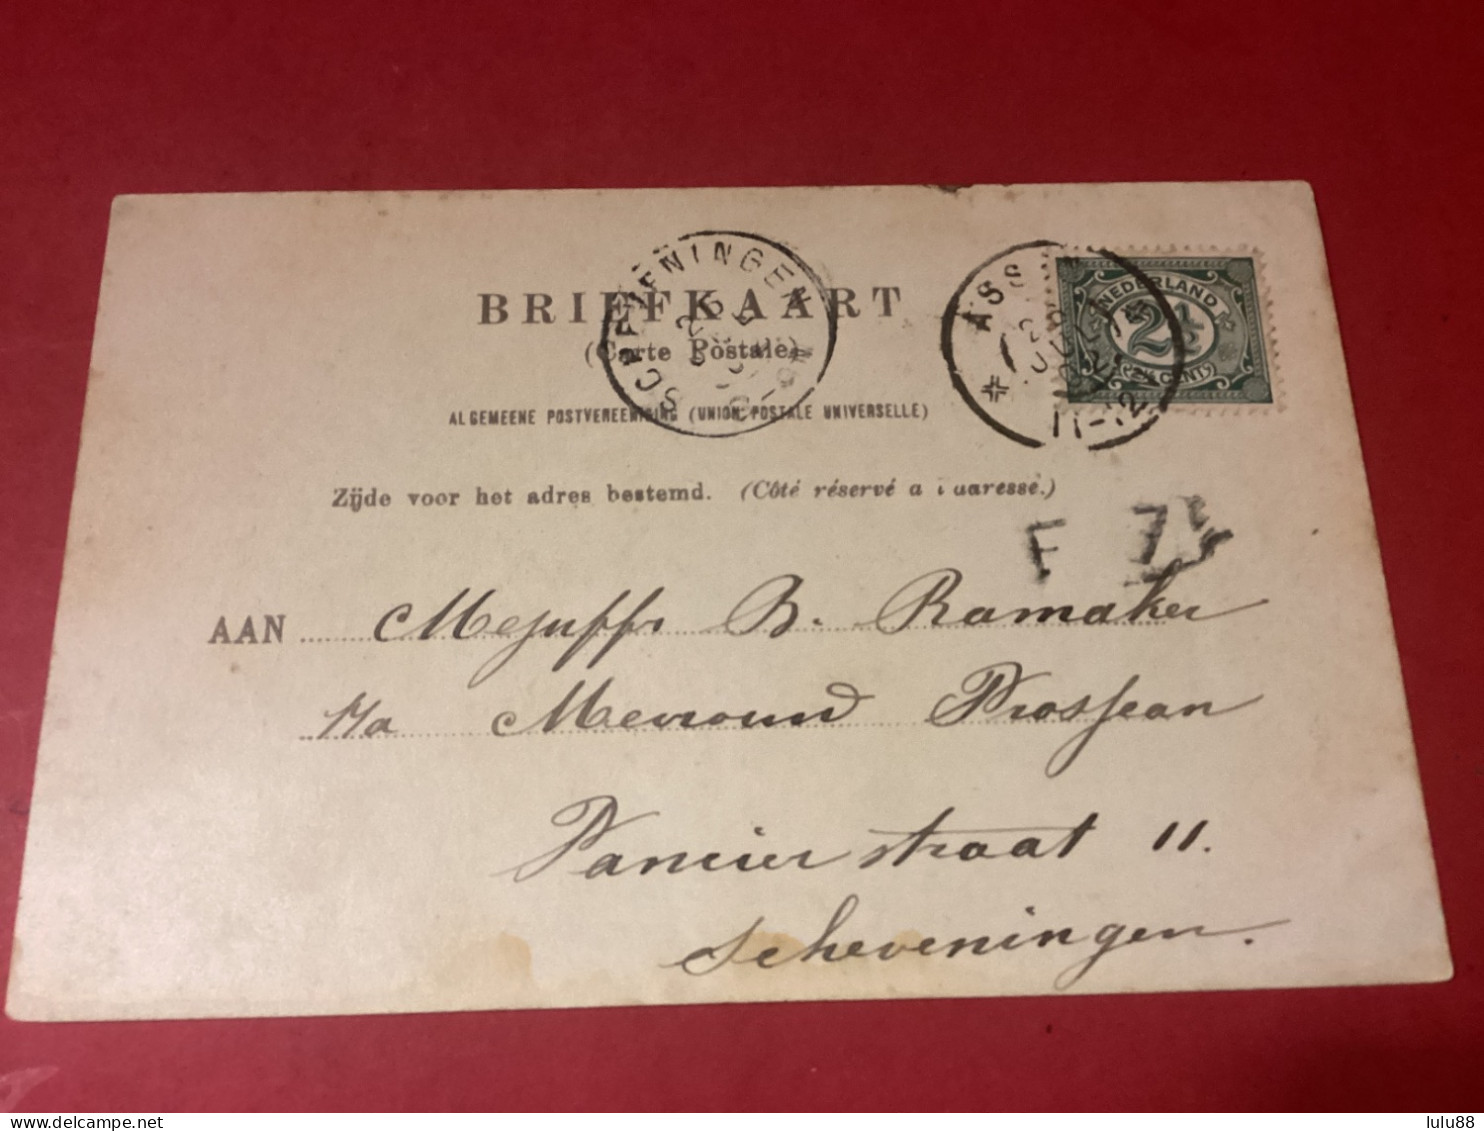 SCHEVENINGEN
ASS
NEDERLAND
2½
2½ CENT
11-12
BRIEFKAART
(Carte Postale)
ALGEMEENE POSTVEREENIGING (UNION POSTALE UNIVERSELLE)
Zijde voor het adres bestemd. (Côté réservé a l'adresse.)
F 7
AAN Mejuffr B. Ramaker
p/a Mevrouw Prosjean
straat 11.
Scheveningen.
delcampe.net
lulu88